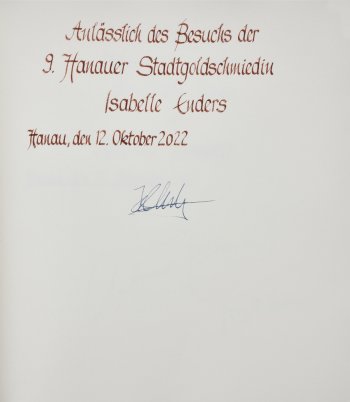 Anlässlich des Besuchs der
9. Hanauer Stadtgoldschmiedin
Isabelle Enders
Hanau, den 12. Oktober 2022